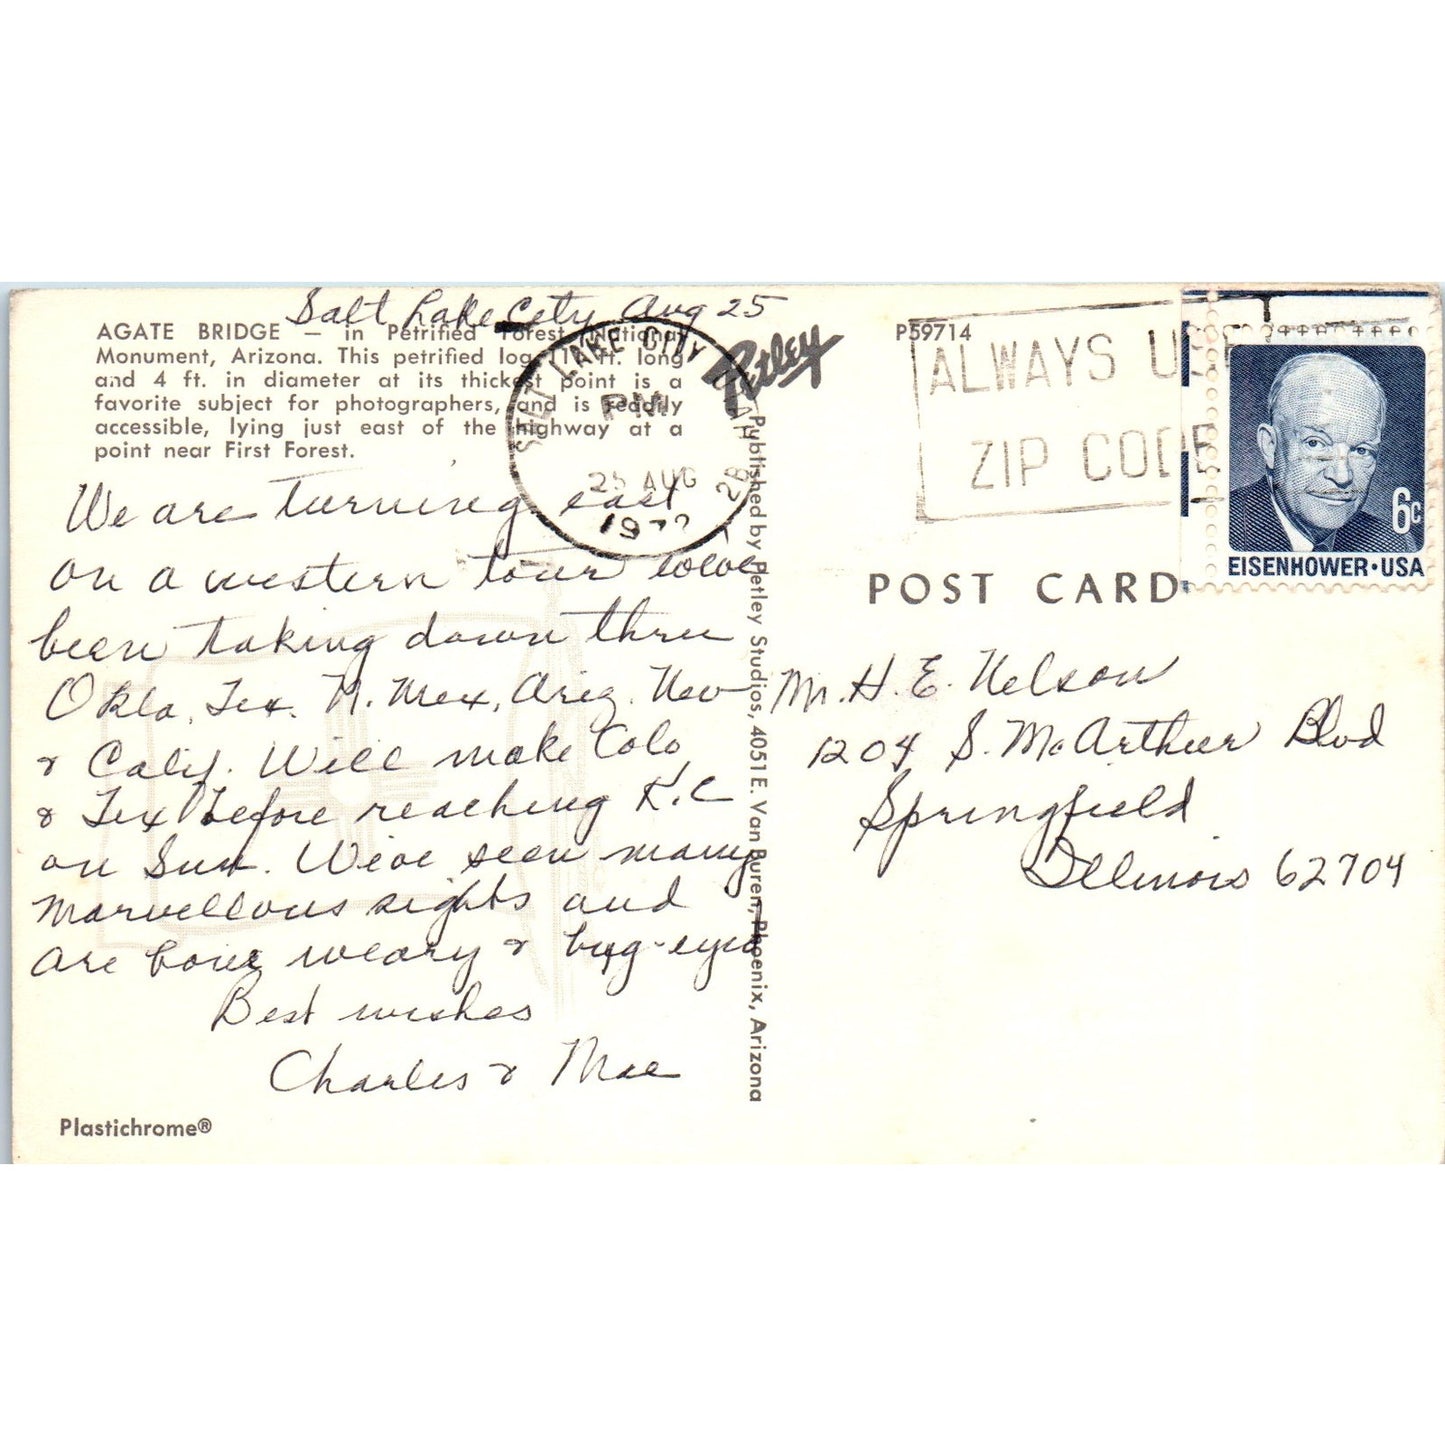 Salt Lake City Aug 25
AGATE BRIDGE — in Petrified Forest National
Monument, Arizona. This petrified log, ft. long
and 4 ft. in diameter at its thickest point is a
favorite subject for photographers, and is readily
accessible, lying just east of the highway at a
point near First Forest.
We are turning east
on a western tour we've
been taking down thru
Okla, Tex. N. Mex, Ariz. Nev
& Calif. Will make Colo
& Tex before reaching K.C
on Sun. We've seen many
marvellous sights and
are bone weary & bug-eyed
Best wishes
Charles & Mae
Plastichrome®
SALT LAKE CITY UTAH
PM
25 AUG
1972
Petley
Published by Petley Studios, 4051 E. Van Buren, Phoenix, Arizona
P59714
ALWAYS USE
ZIP CODE
6c
EISENHOWER·USA
POST CARD
Mr. H. E. Nelson
1204 S. McArthur Blvd
Springfield
Illinois 62704